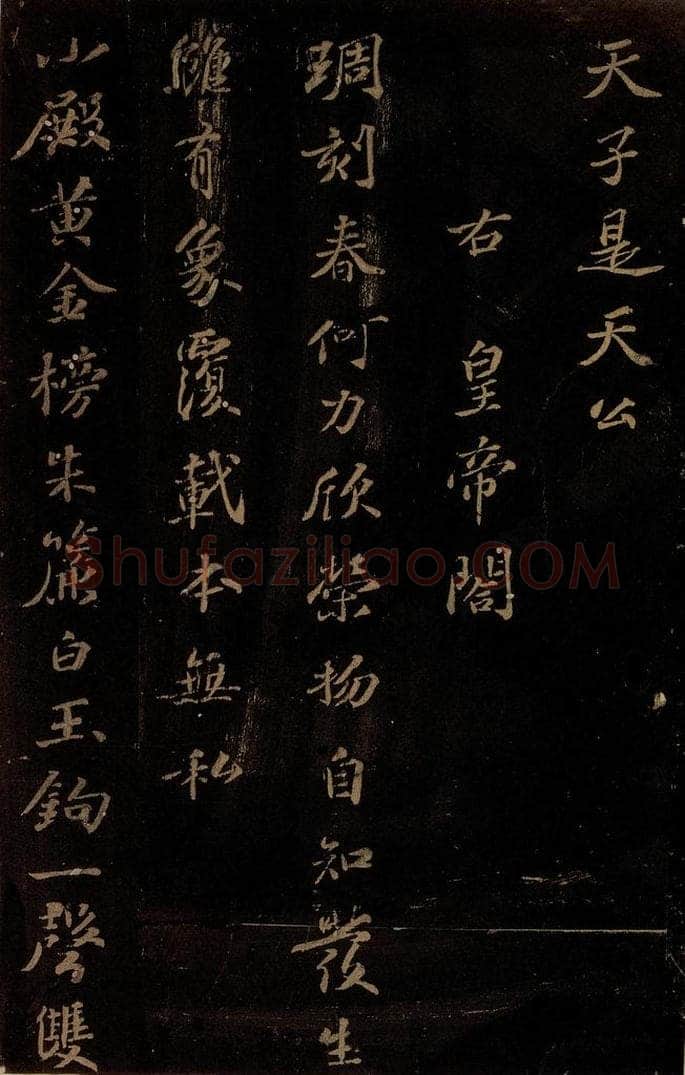 天子是天公
右 皇帝閤
琱刻春何力欣榮物自知發生
雖有象覆載本無私
小殿黃金榜朱簾白玉鉤一聲雙
Shufaziliao.COM